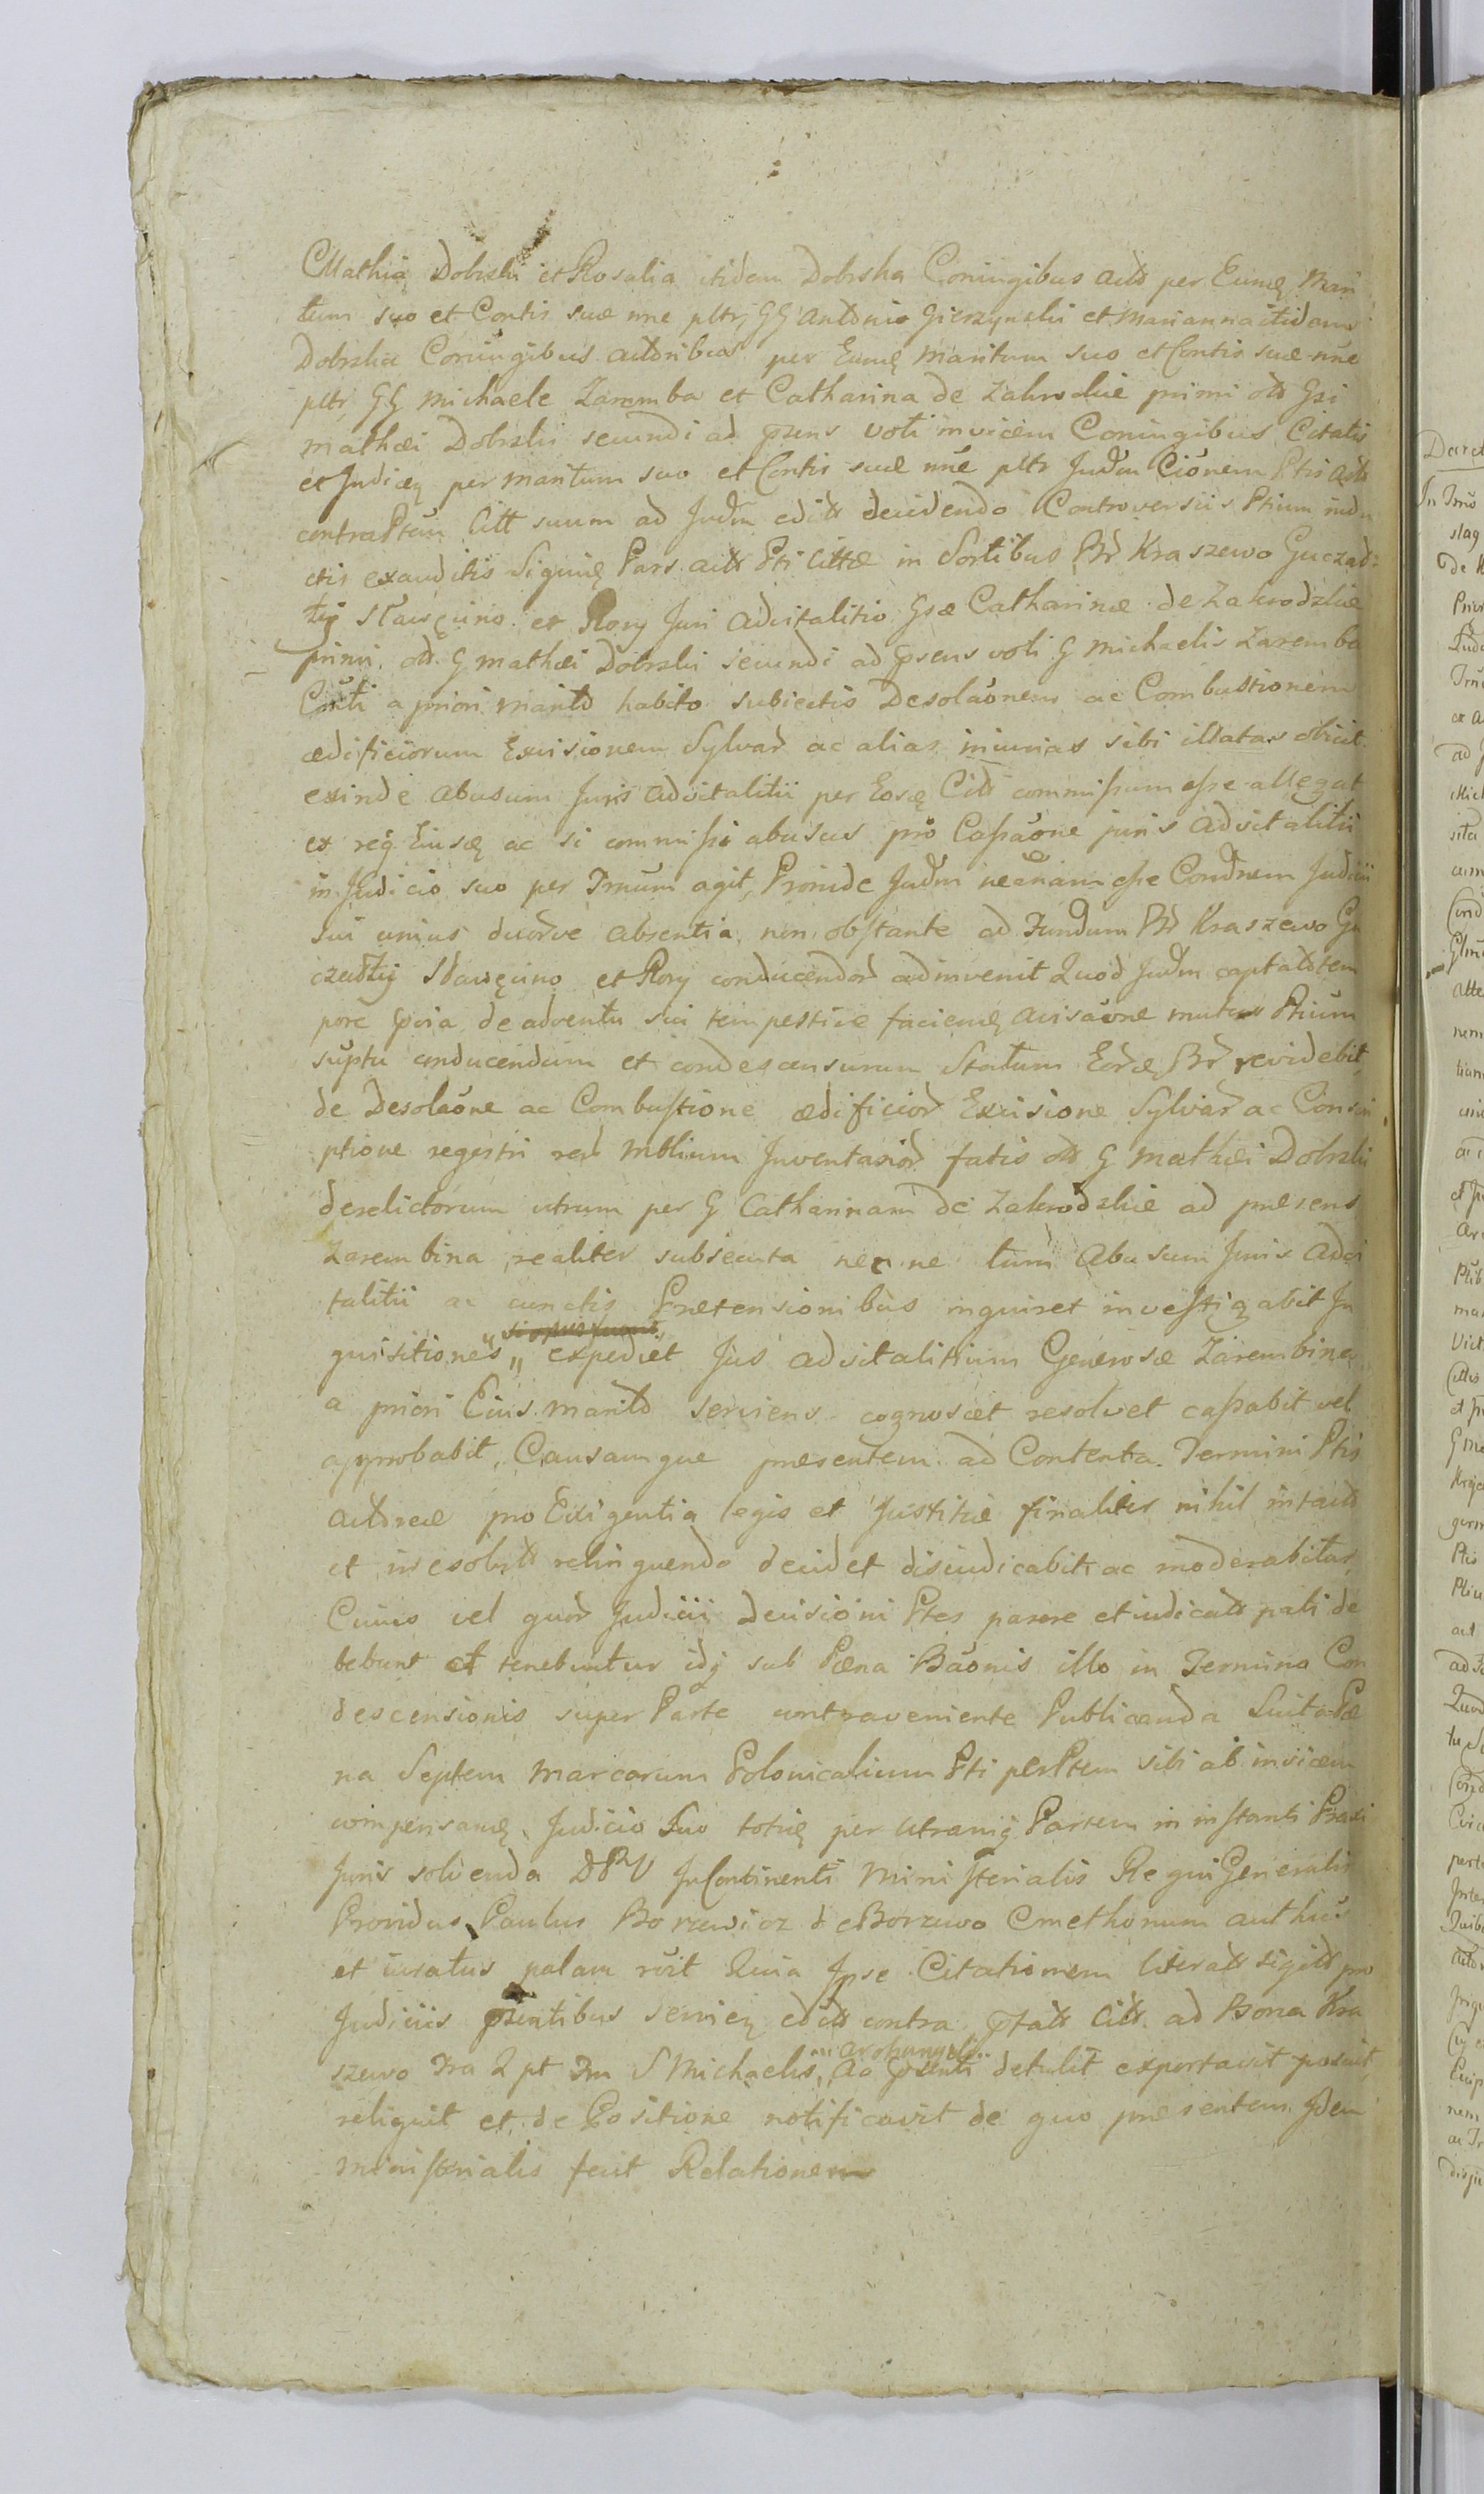 Mathia Dobrski et Rosalia itidem Dobrska Coniugibus actt per Eunq Mari
tum suo et Contis suæ nne pltr, GG Antonio Gierzynski et Marianna itidem
Dobrska Coniugibus actoribus per Eunq Maritum suo et Contis suæ nne
pltr GG Michaele Zaremba et Catharina de Zakrodzkie primi ott Gsi
Mathæi Dobrski secundi ad præns voti invicem Coniugibus Citatis
et Judicq per maritum suo et Contis suæ nne pltr Judm Cionem Ptis actt
contra Ptem Citt suum ad Judm editt decidendo Controversiis Ptium indu
ctis exauditis Siquidq Pars actt Pti Cittæ in Sortibus Br Kraszewo Guczad
tij Sławęcino et Rory Juri Advitalitio Gsæ Catharinæ de Zakrodzkie
primi ott G Mathæi Dobrski secundi ad præsens voti G Michaelis Zaremba
Conti a priori Marito habito subiectis Desolaonem ac Combustionem
ædificiorum Excisionem Sylvar ac alias iniurias sibi illatas obiicit
exinde Abusum Juris Advitalitii per Eosq Citt commissum esse allegat
et reg Eiusq ac si commissi abusus pro Cassaone juris Advitalitii
in Judicio suo per Trnum agit, Proinde Judm necariam esse Condnem Judicii
sui unius duorve absentia non obstante ad Fundum Br Kraszewo Gu
czadtij Sławęcino et Rory conducendor adinvenit Quod Judm captatt tem
pore prvia de adventu sui tempestive faciendq avisaone mutuo Ptium
suptu conducendum et condescensurum Statum Eorq Br revidebit,
de Desolaone ac Combustione ædificior Excisione Sylvar ac Conscri
ptione regestri rer Mblium Inventarior fatis ott G Mathæi Dobrski
derelictorum utrum per G Catharinam de Zakrodzkie ad præsens
Zarembina realiter subsecuta nec ne tum Abusum Juris Advi
talitii ac cunctis Prætensionibus inquiret investigabit In
quisitiones si opus fuerit expediet Jus advitalitium Generosæ Zarembinæ
a priori Eius marito serviens cognoscet resolvet cassabit vel
approbabit, Causamque præsentem ad Contenta Termini Ptis
actoreæ pro Exigentia legis et Justitiæ finaliter nihil intactt
et irresolutt relinquendo decidet disiudicabit ac moderabitur
Cuius vel quor Judicii decisioni Ptes parere et iudicatt pati de
bebunt et tenebuntur idq sub Pæna Baonis illo in Termino Con
descensionis super Parte contraveniente Publicanda Luita Pæ
na Septem Marcarum Polonicalium Pti per Ptem sibi ab invicem
compensandq Judicio suo totidq per utramq Partem in instanti Praxi
Juris solvenda DPV In Continenti Ministerialis Regni Generalis
Providus Paulus Borzewicz de Borzewo Cmethonum authus
et iuratus palam roit Quia Ipse Citationem literatt sigitt pro
Judiciis præntibus servien editt contra prtatt Citt ad Bona Kra
szewo Fra 2 pt Fm S Michaelis, Archangeli Ao præsenti detulit exportavit posuit
reliquit et de Positione notificavit de quo præsentem Idem
Ministerialis fecit Relationem